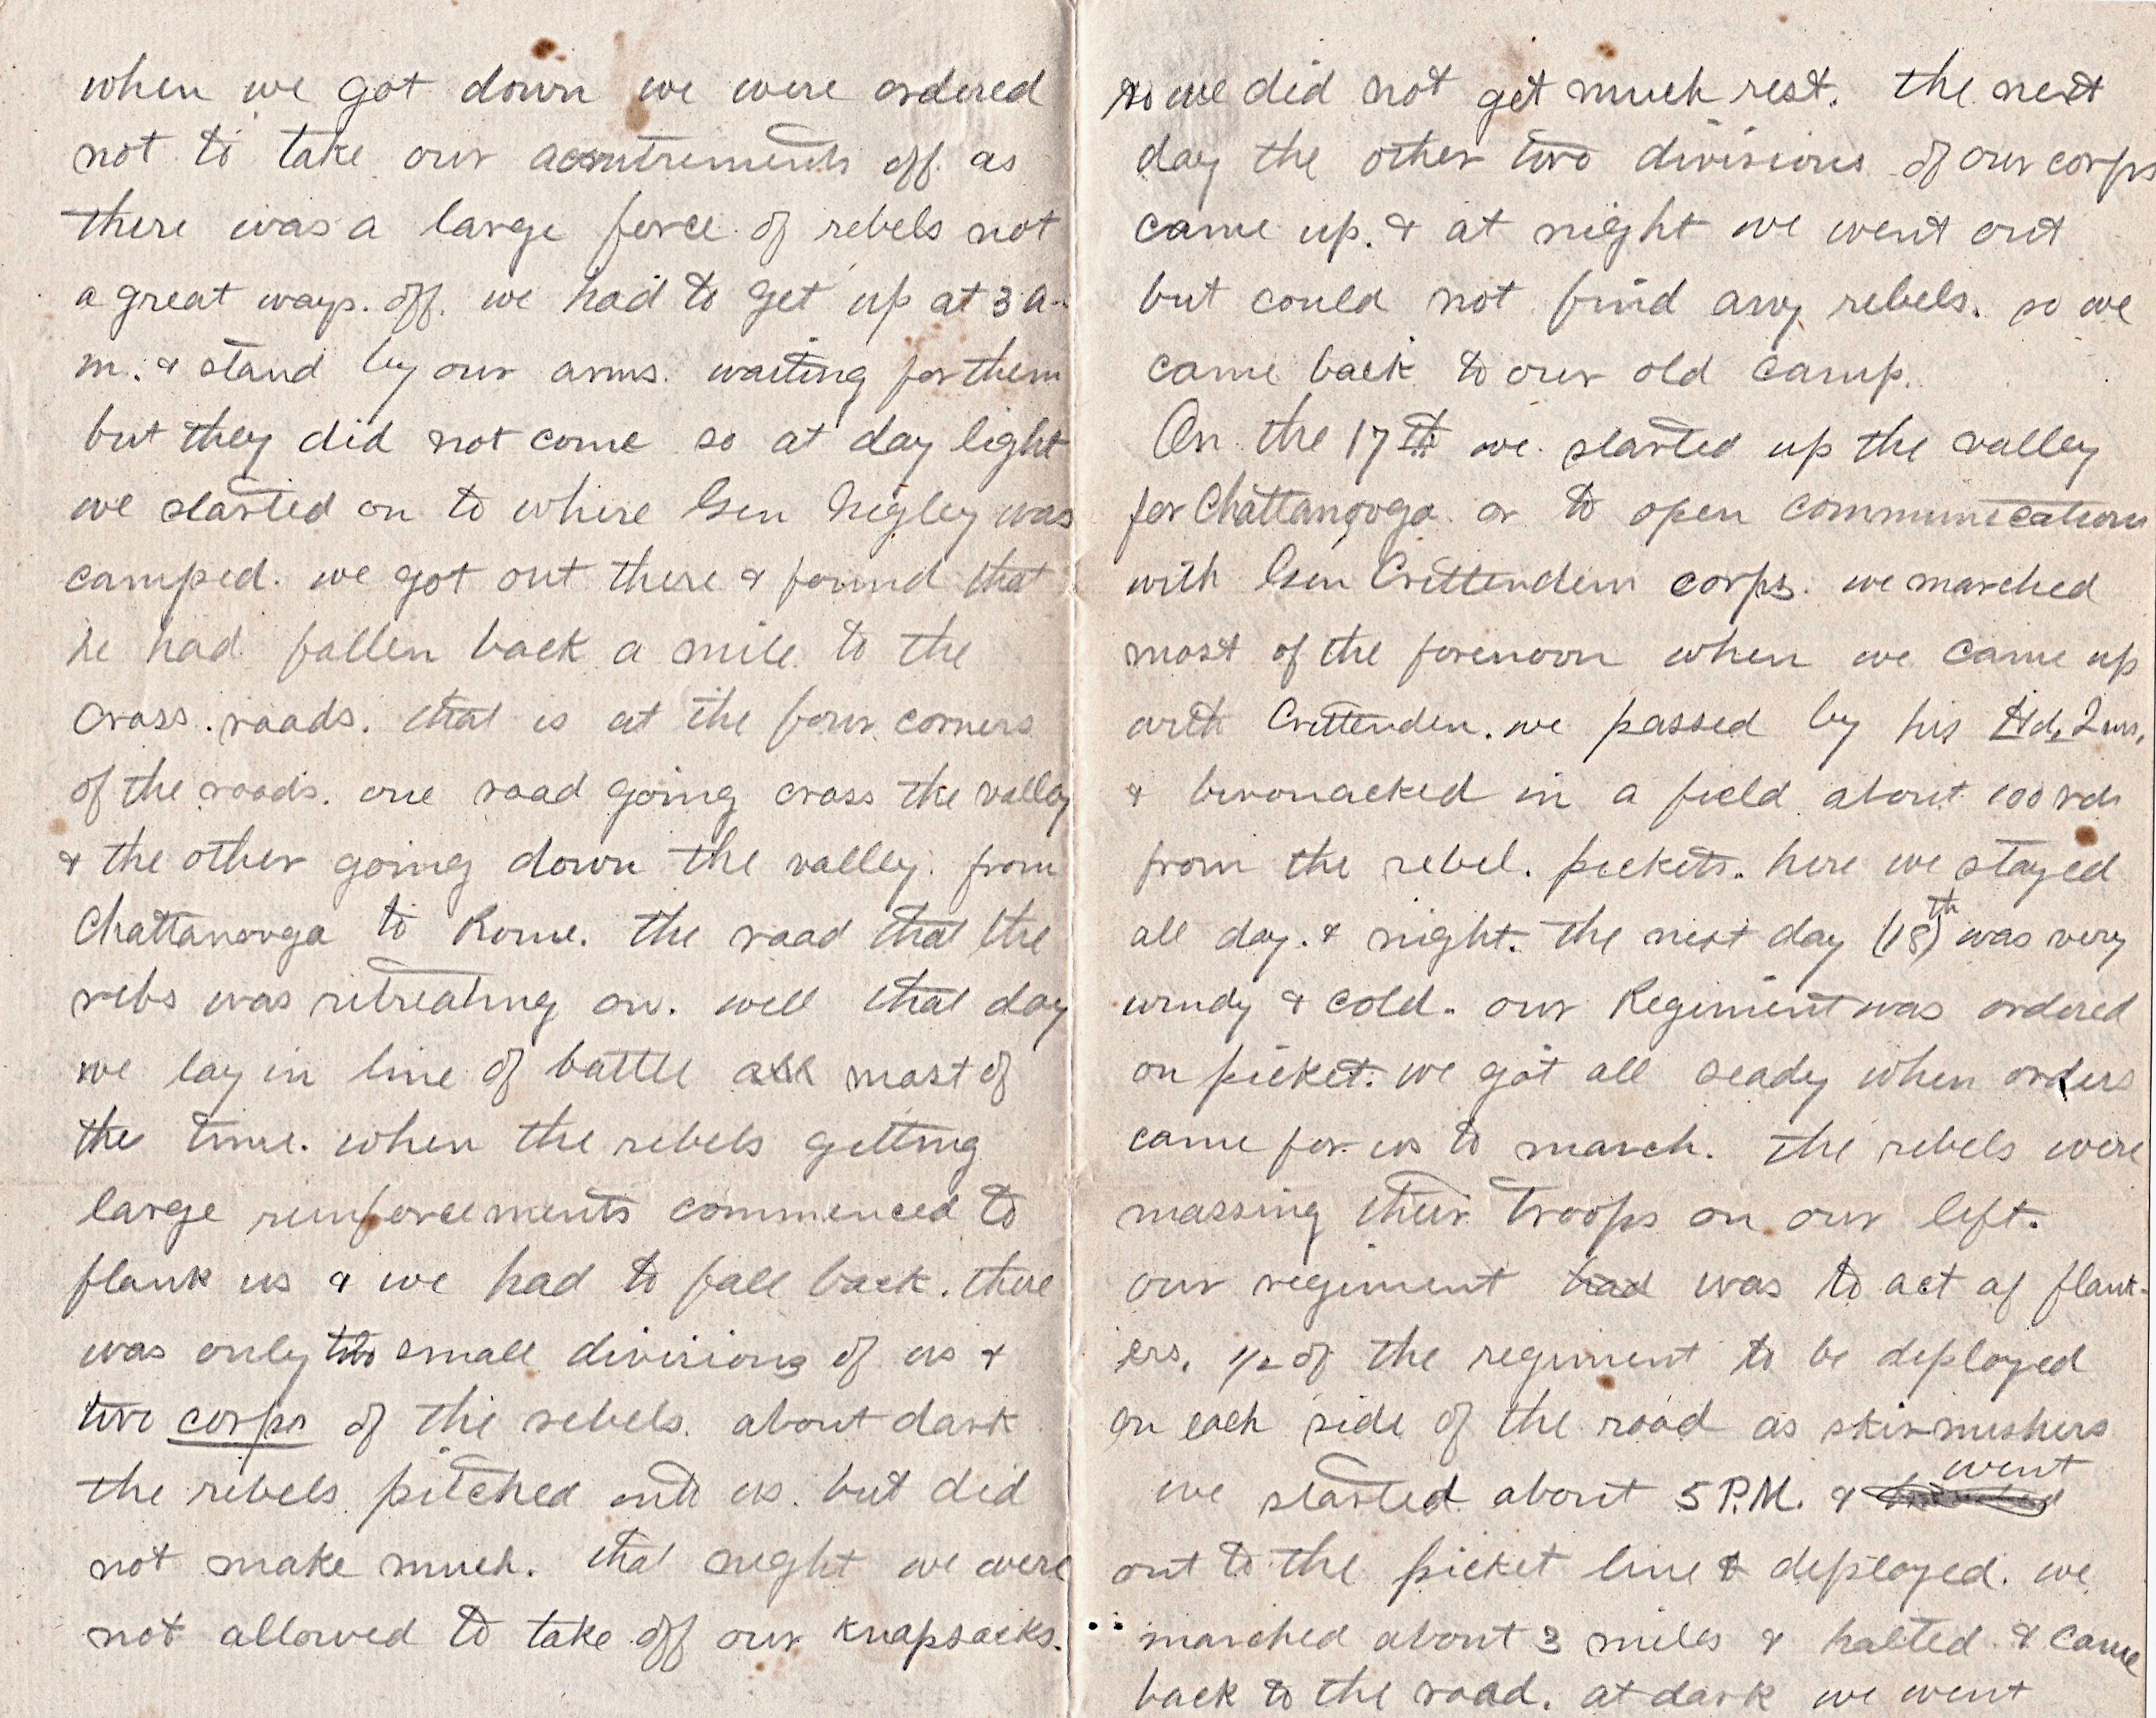 when we got down we were ordered
not to take our acoutrements off. as
there was a large force of rebels not
a great ways. off. we had to get up at 3 a-
m. & stand by our arms. waiting for them
but they did not come so at day light
we started on to where Gen Negley was
camped. we got out there & found that
he had fallen back a mile to the
cross. roads. that is at the four corners
of the roads. one road going cross the valley
& the other going down the valley. from
Chattanooga to Rome. the road that the
rebs was retreating on. well that day
we lay in line of battle all most of
the time. when the rebels getting
large reinforcements commenced to
flank us & we had to fall back. there
was only two small divisions of us &
two corps of the rebels. about dark
the rebels pitched into us. but did
not make much. that night we were
not allowed to take off our knapsacks.
so we did not get much rest. the next
day the other two divisions of our corps
came up. & at night we went out
but could not find any rebels. so we
came back to our old camp.
On the 17th we started up the valley
for Chattanooga or to open communications
with Gen Crittenden corps. we marched
most of the forenoon when we came up
with Crittenden. we passed by his Hd, Qurs,
& bivouacked in a field about 100 rds
from the rebel. pickets. here we stayed
all day. & night. the next day (18)th was very
windy & cold. our Regiment was ordered
on picket. we got all ready when orders
came for us to march. the rebels were
massing their troops on our left.
our regiment had was to act as flank-
ers. 1/2 of the regiment to be deployed
on each side of the road as skirmishers
we started about 5 P.M. & went
out to the picket line & deployed. we
marched about 3 miles & halted & came
back to the road. at dark we went